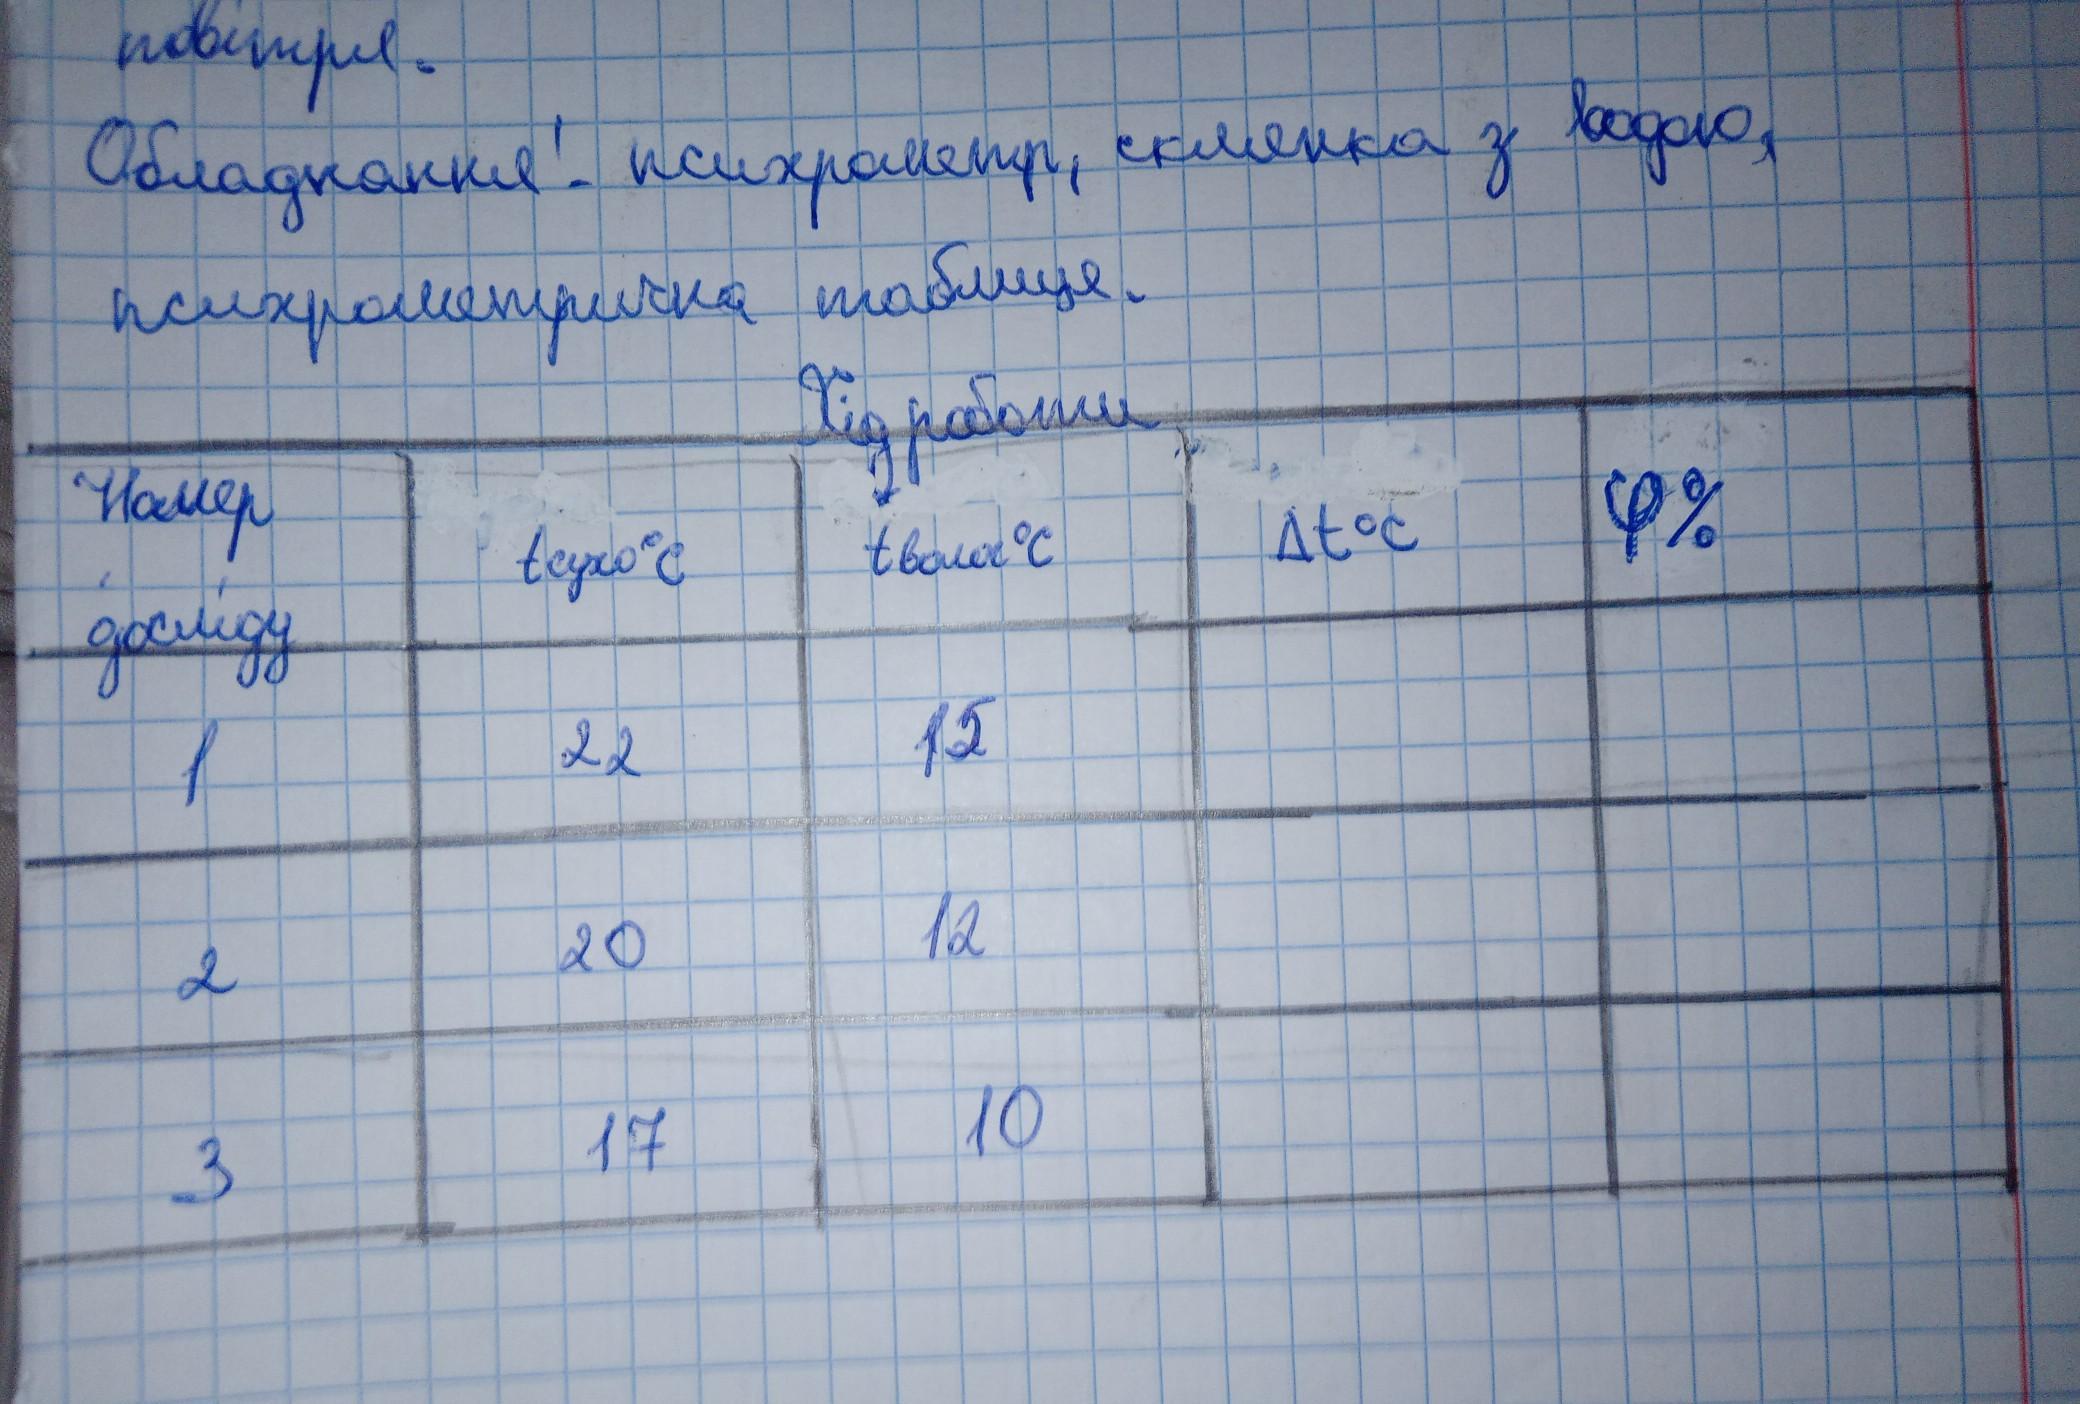 повітря.
Обладнання:- психрометр, склянка з водою,
психрометрична таблиця.
Хід роботи
Номер досліду tсухо°C tволог°C Δt°C φ%
1 22 15
2 20 12
3 17 10